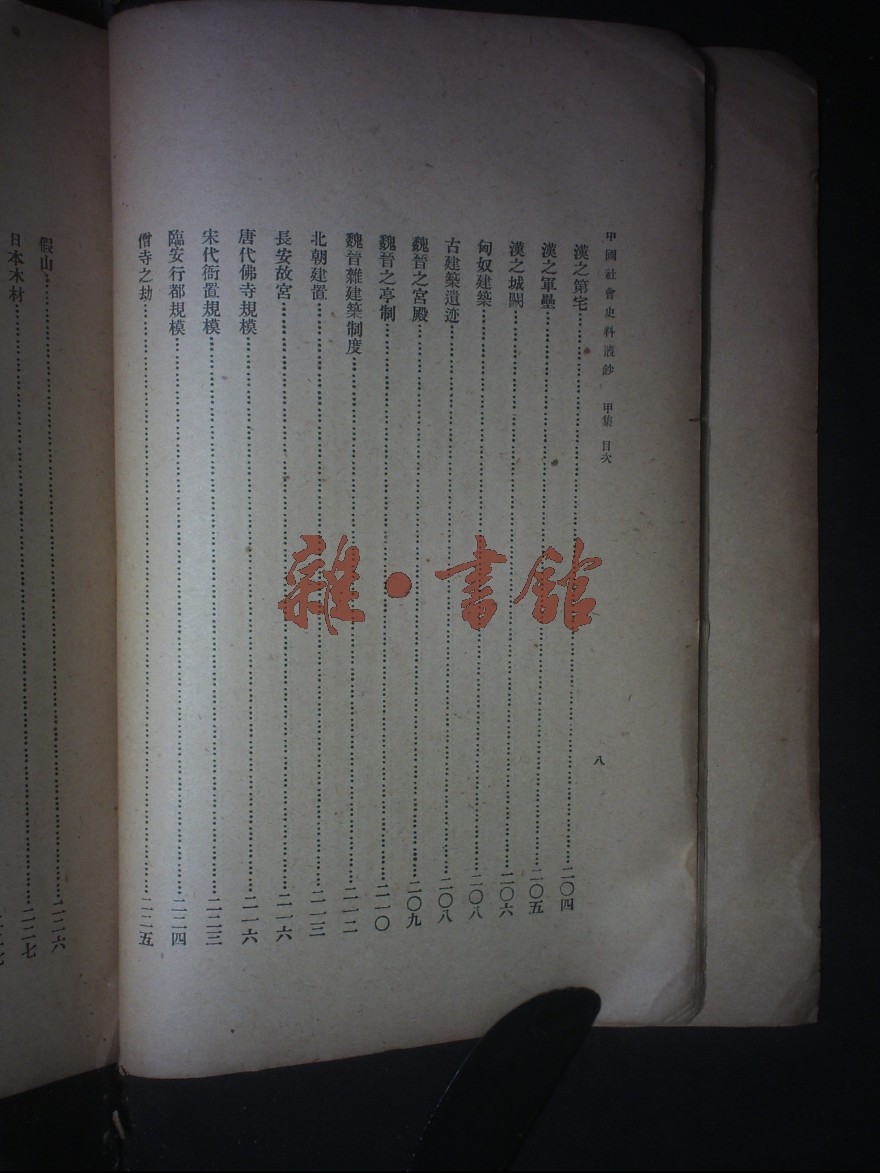 中國社會史料叢鈔 甲集 目次
八
漢之第宅……二〇四
漢之軍壘……二〇五
漢之城闕……二〇六
匈奴建築……二〇八
古建築遺迹……二〇八
魏晉之宮殿……二〇九
魏晉之亭制……二一〇
魏晉雜建築制度……二一二
北朝建置……二一三
長安故宮……二一六
唐代佛寺規模……二一六
宋代衙置規模……二二三
臨安行都規模……二二四
僧寺之劫……二二五
假山……二二六
日本木材……二二七
雜·書館